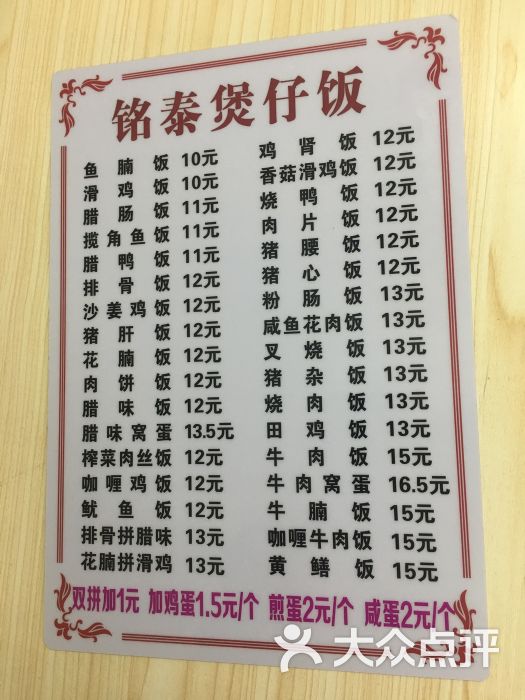 铭泰煲仔饭
鱼腩饭 10元
滑鸡饭 10元
腊肠饭 11元
揽角鱼饭 11元
腊鸭饭 11元
排骨饭 12元
沙姜鸡饭 12元
猪肝饭 12元
花腩饭 12元
肉饼饭 12元
腊味饭 12元
腊味窝蛋 13.5元
榨菜肉丝饭 12元
咖喱鸡饭 12元
鱿鱼饭 12元
排骨拼腊味 13元
花腩拼滑鸡 13元
鸡肾饭 12元
香菇滑鸡饭 12元
烧鸭饭 12元
肉片饭 12元
猪腰饭 12元
猪心饭 12元
粉肠饭 13元
咸鱼花肉饭 13元
叉烧饭 13元
猪杂饭 13元
烧肉饭 13元
田鸡饭 13元
牛肉饭 15元
牛肉窝蛋 16.5元
牛腩饭 15元
咖喱牛肉饭 15元
黄鳝饭 15元
双拼加1元 加鸡蛋1.5元/个 煎蛋2元/个 咸蛋2元/个
大众点评